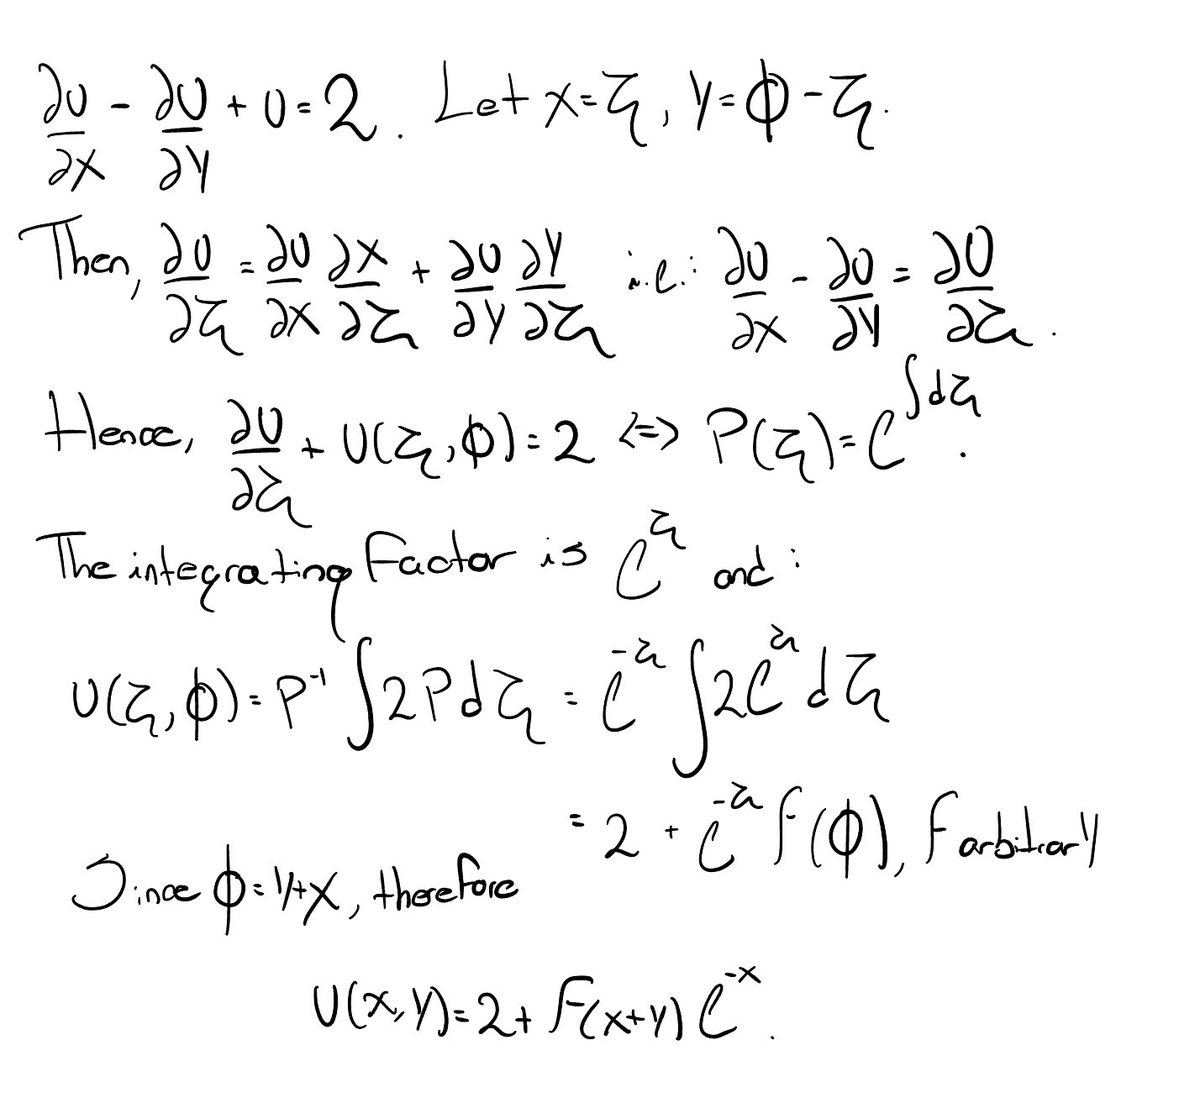 ∂U/∂x - ∂U/∂y + U = 2. Let x = ξ, y = ϕ - ξ.
Then, ∂U/∂ξ = ∂U/∂x ∂x/∂ξ + ∂U/∂y ∂y/∂ξ i.e.: ∂U/∂x - ∂U/∂y = ∂U/∂ξ.
Hence, ∂U/∂ξ + U(ξ,ϕ) = 2 <=> P(ξ) = e^∫dξ.
The integrating factor is e^ξ and:
U(ξ,ϕ) = P^-1 ∫2Pdξ = e^-ξ ∫2e^ξ dξ
= 2 + e^-ξ F(ϕ), F arbitrary
Since ϕ = y+x, therefore
U(x,y) = 2 + F(x+y) e^-x.